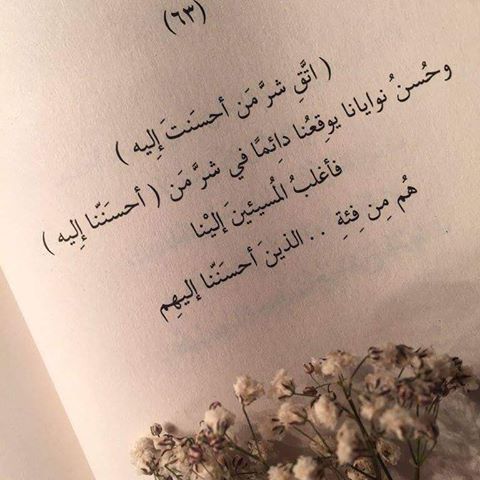 (٦٣)
( اتَّقِ شرَّ مَن أحسَنتَ إليه )
وحُسنُ نوايانا يوقِعُنا دائِمًا في شرَّ مَن ( أحسَنّنا إليه )
فأغلبُ المُسيئينَ إليْنا
هُم مِن فِئةِ . . الذينَ أحسَنّنا إليهِم